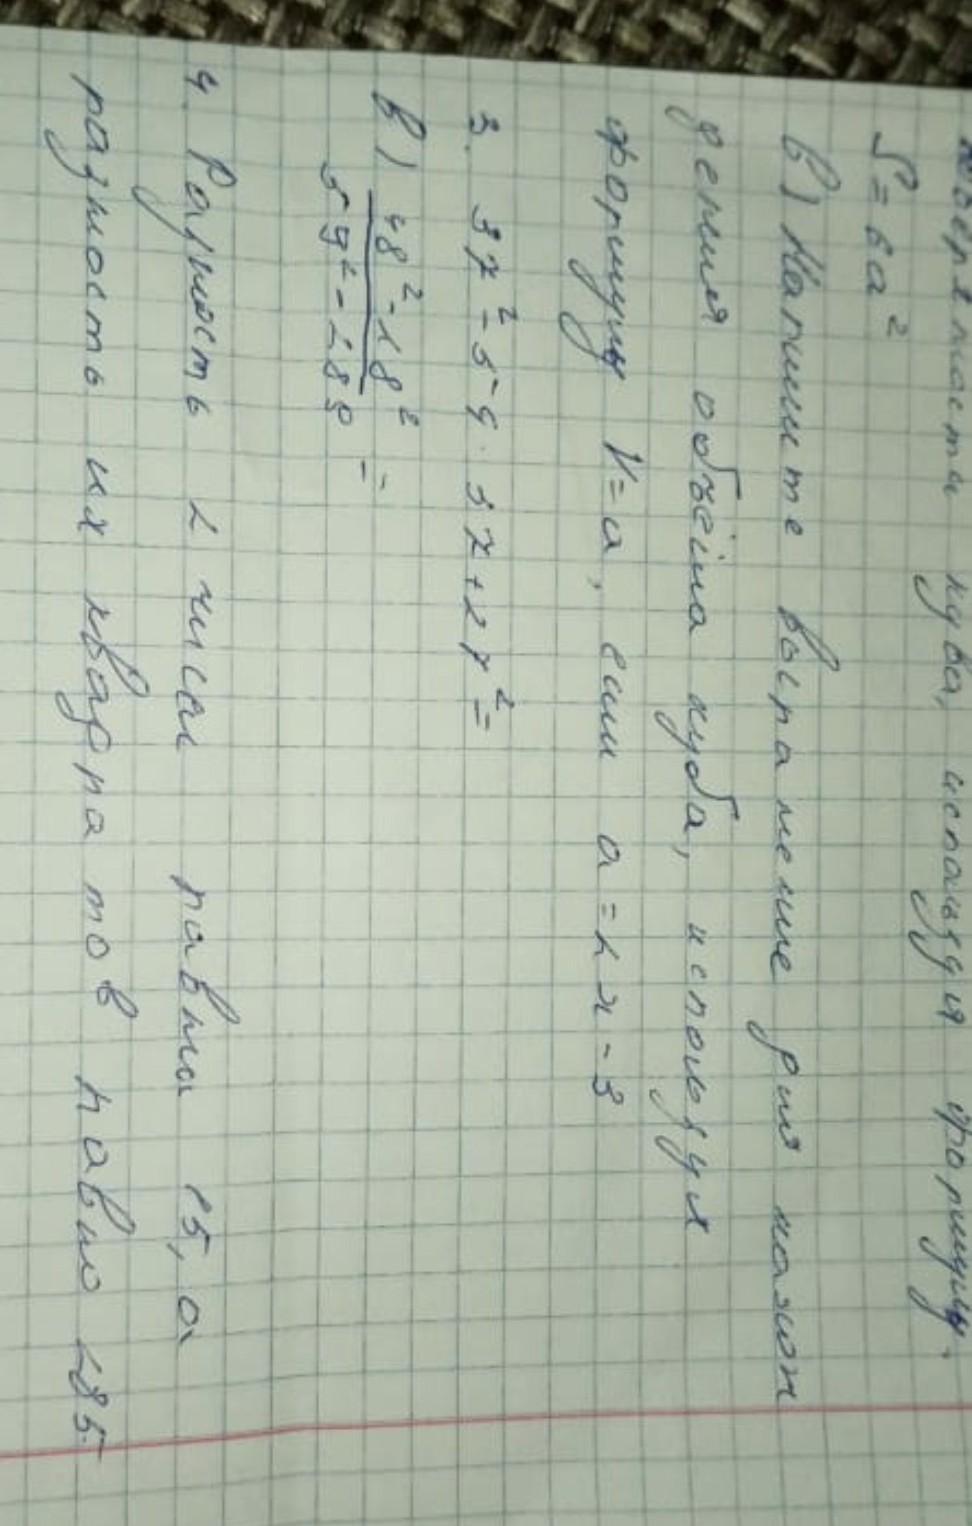 поверхности куба, используя формулу.
S = 6a²
в) Напишите выражение для нахож
дения объёма куба, используя
формулу V=a, если a = 2x - 3
3. 37² - 54 · 37 + 27² =
в) 48² - 18²
59² - 289 =
4. Разность 2 чисел равны 15, а
разность их квадратов равно 285